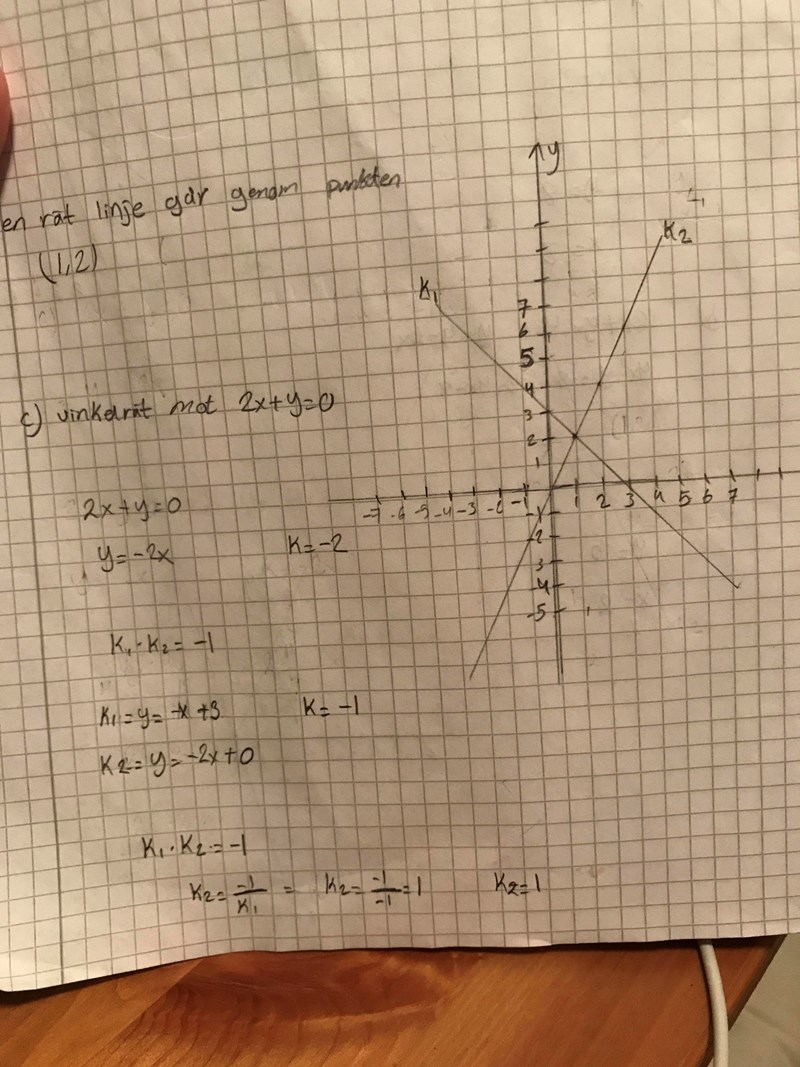 en rät linje går genom punkten
(1,2)
c) vinkelrät mot 2x+y=0
2x+y=0
y=-2x K=-2
K₁·K₂=-1
K₁=y=-x+3 K=-1
K₂=y=-2x+0
K₁·K₂=-1
K₂=-1/K₁ = K₂=-1/-1=1 K₂=1
y
K₂
K₁
7
6
5
4
3
2
1
-7 -6 -5 -4 -3 -2 -1 1 2 3 4 5 6 7
-1
-2
3
-4
-5